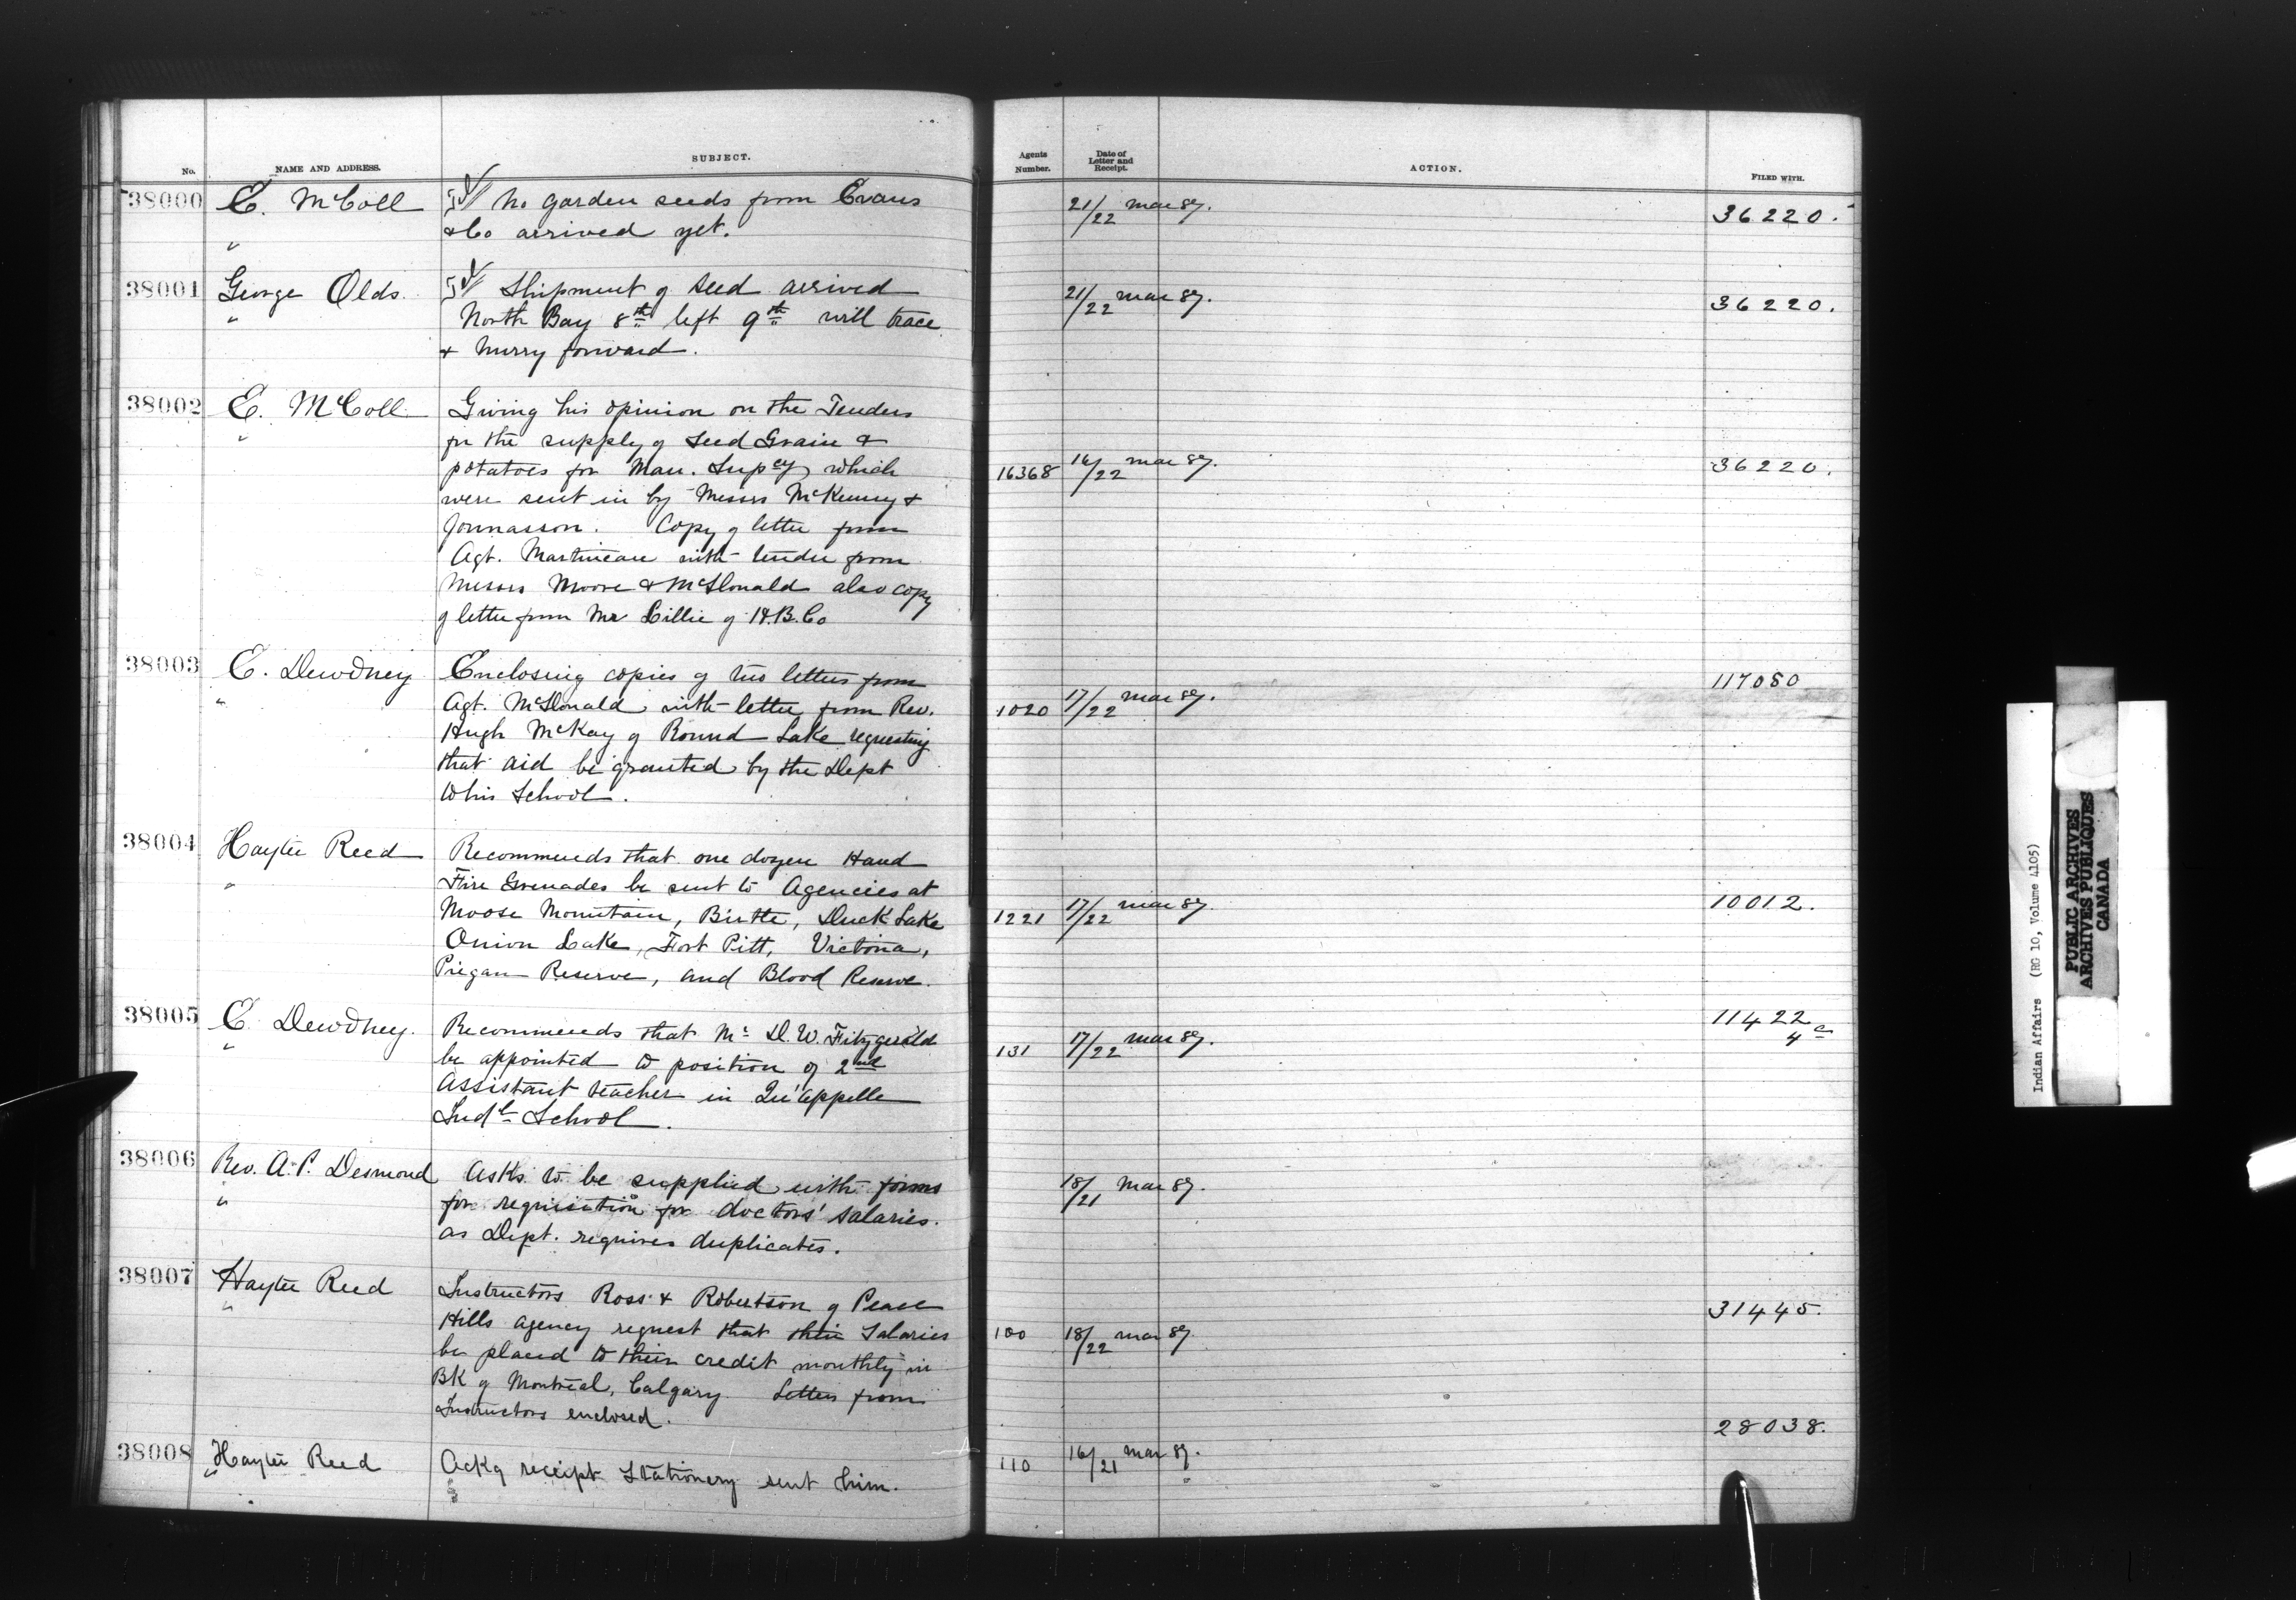 No. NAME AND ADDRESS. SUBJECT. Agents Number. Date of Letter and Receipt. ACTION. FILED WITH.
38000 E. McColl No garden seeds from Evans 21/22 Mar 87. 36220.
" & Co arrived yet.
38001 George Olds Shipment of seed arrived 21/22 Mar 87. 36220.
" North Bay 8th left 9th will trace
& hurry forward.
38002 E. McColl Giving his opinion on the Tenders
" for the supply of Seed Grain &
potatoes for Man. Supcy which 16368 16/22 Mar 87. 36220.
were sent in by Messrs McKenny &
Jonnasson. Copy of letter from
Agt. Martineau with tender from
Messrs Moore & McDonald also copy
of letter from Mr Lillie of H.B.Co
38003 E. Dewdney Enclosing copies of two letters from 117080
" Agt. McDonald with letter from Rev. 1020 17/22 Mar 87.
Hugh McKay of Round Lake requesting
that aid be granted by the Dept
to his School.
38004 Hayter Reed Recommends that one dozen Hand
" Fire Grenades be sent to Agencies at
Moose Mountain, Birtle, Duck Lake 1221 17/22 Mar 87. 10012.
Onion Lake, Fort Pitt, Victoria,
Piegan Reserve, and Blood Reserve.
38005 E. Dewdney. Recommends that Mr D. W. Fitzgerald 11422
" be appointed to position of 2nd 131 17/22 Mar 87. 4
Assistant teacher in Qu'appelle
Indl School.
38006 Rev. A. P. Desmond Asks to be supplied with forms 18/21 Mar 87.
" for requisition for doctors' salaries.
as Dept. requires duplicates.
38007 Hayter Reed Instructors Ross & Robertson of Peace 31445.
" Hills agency request that their Salaries 100 18/22 Mar 87.
be placed to their credit monthly in
Bk of Montreal, Calgary. Letters from
Instructors enclosed.
28038.
38008 Hayter Reed Ackg receipt Stationery sent him. 110 16/21 Mar 87.
"
Indian Affairs (RG 10, Volume 4105)
PUBLIC ARCHIVES
ARCHIVES PUBLIQUES
CANADA